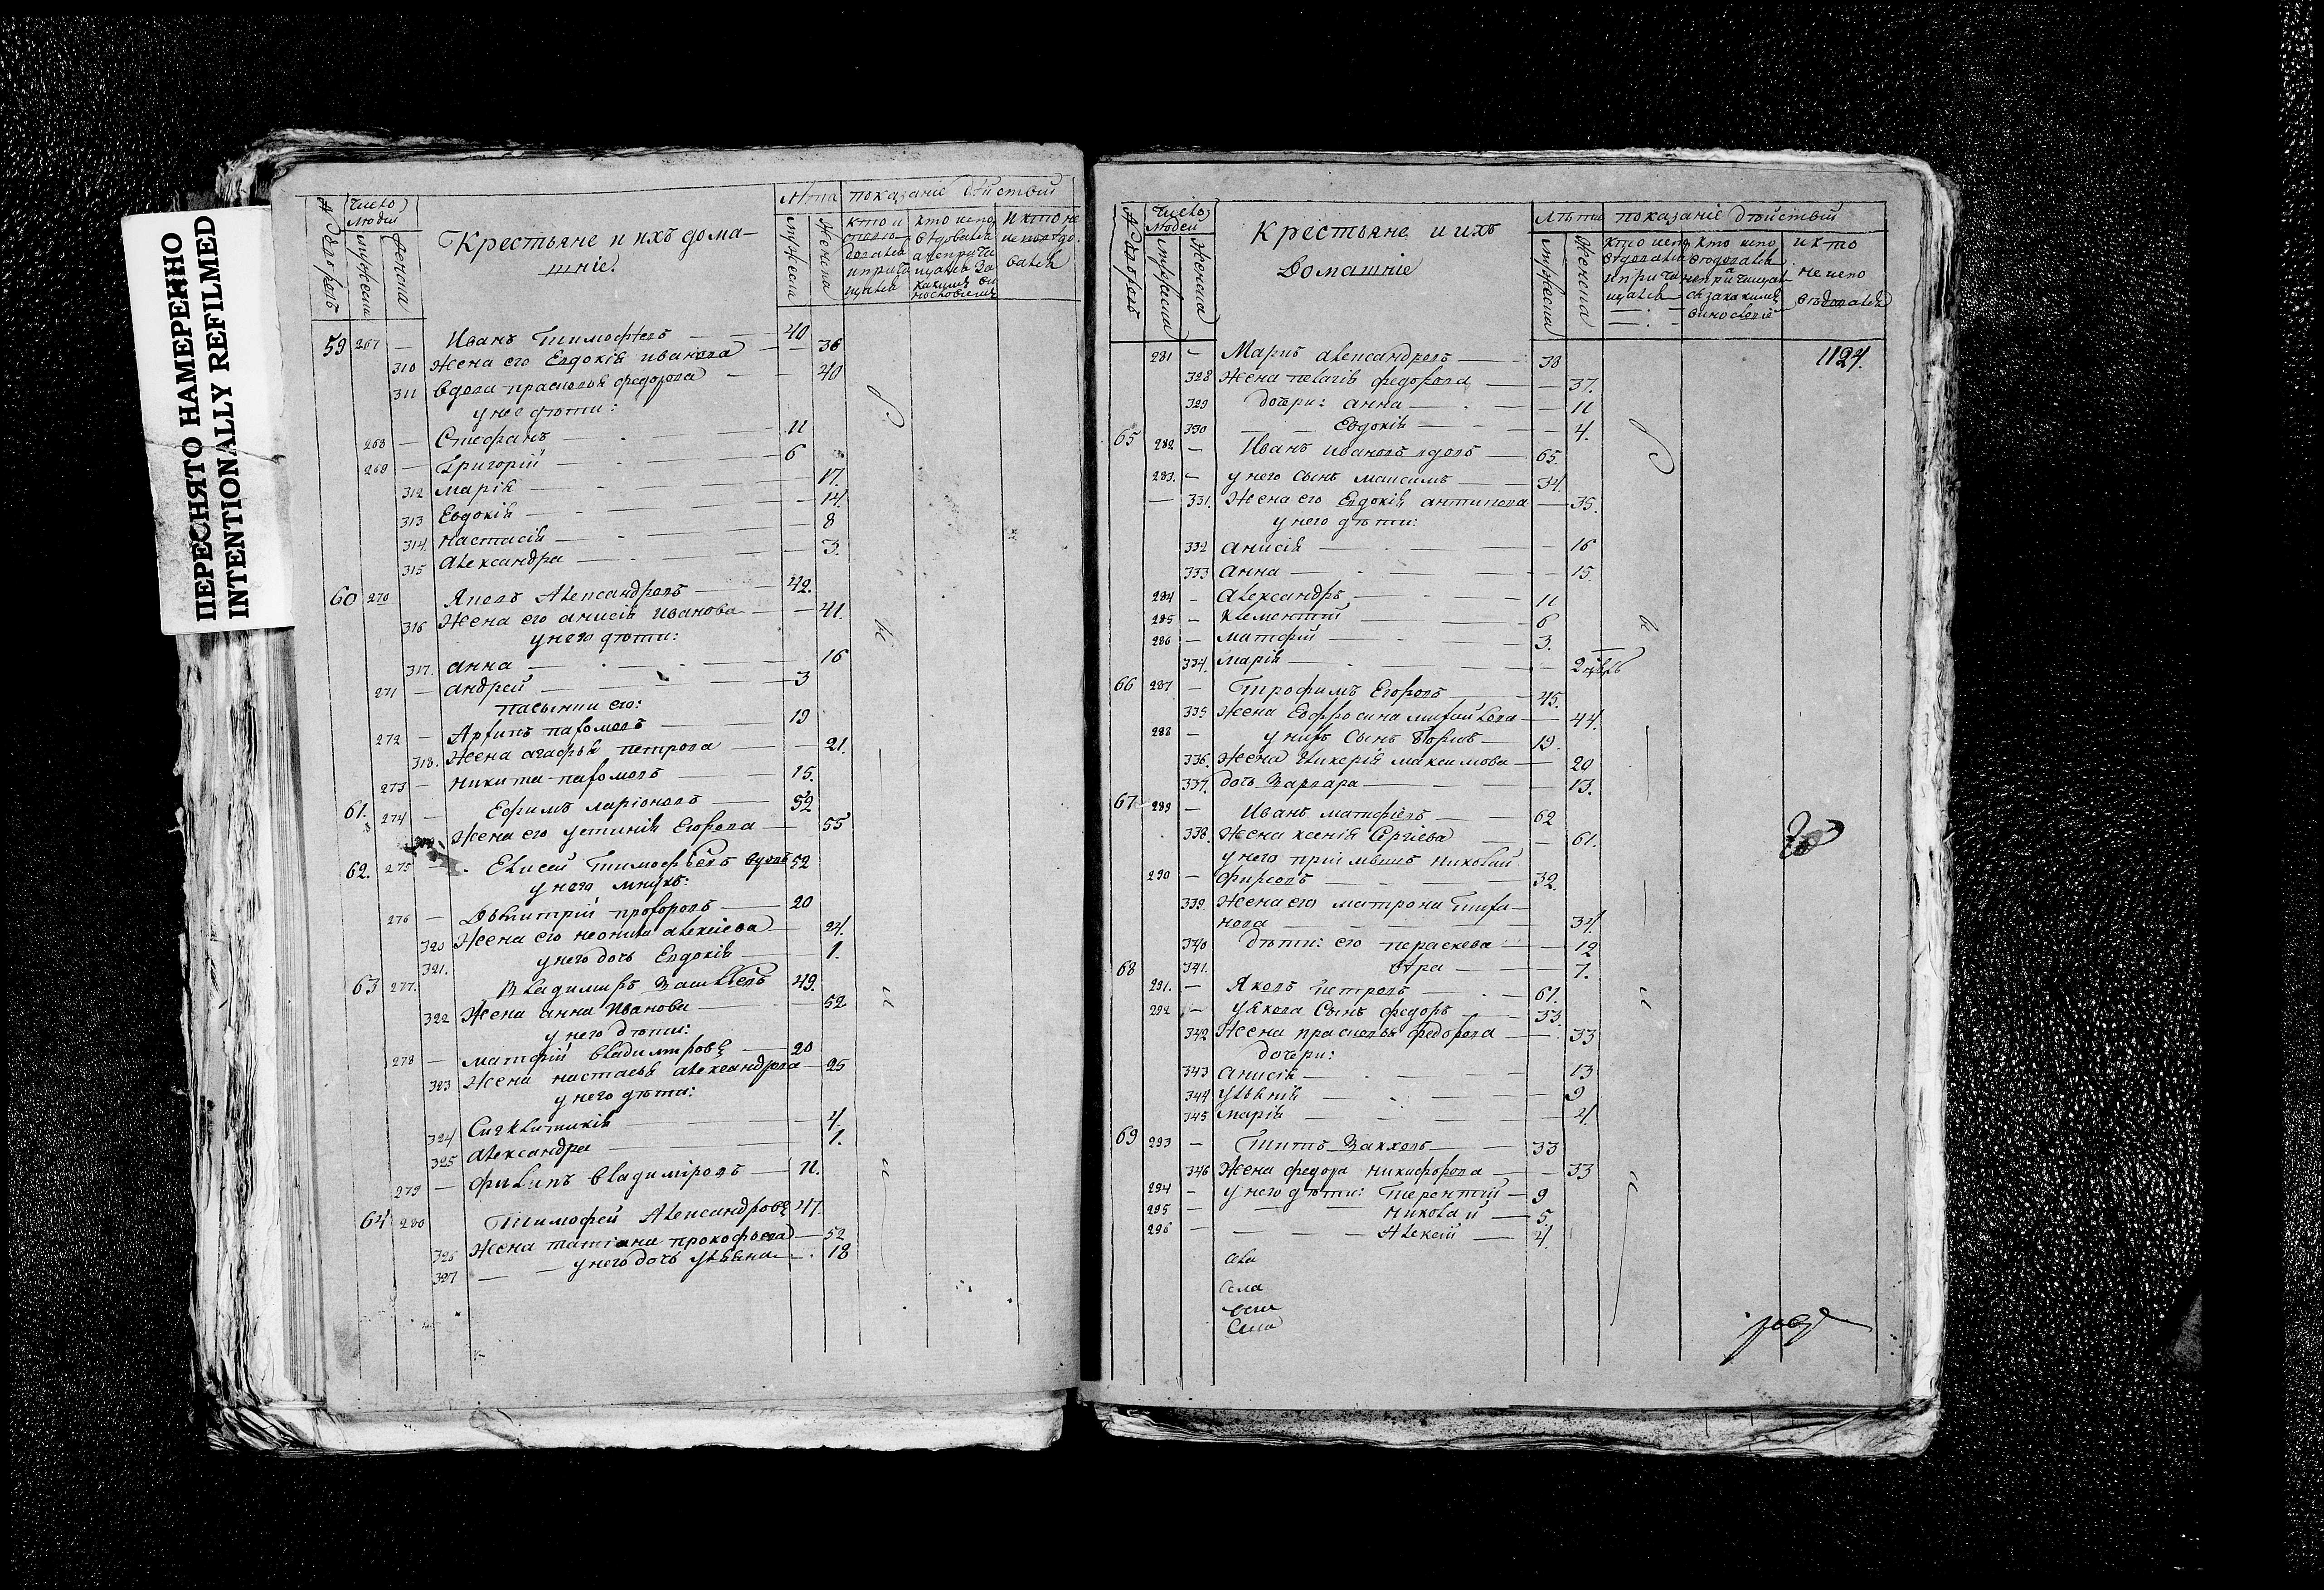 ПЕРЕСНЯТО НАМЕРЕННО
INTENTIONALLY REFILMED
число людей
Крестьяне и ихъ дома-
шніе.
лѣта показаніе дѣйствій
59 267 — Иванъ Тимофѣевъ — 40
310 Жена его Евдокія Иванова — 36
311 Вдова Прасковья Федорова — 40
у нее дѣти:
268 — Стефанъ — 11
269 — Григорій — 6
312 Марія — 17.
313 Евдокія — 14.
314 Настасія — 8
315 Александра — 3.
60 270 Яковъ Александровъ — 42.
316 Жена его Анисія Иванова — 41.
у него дѣти:
317. Анна — 16
271 — Андрей — 3
пасынки его:
272 — Архипъ Пахомовъ — 19
318. Жена Агафья Петрова — 21.
273 — Никита Пахомовъ — 15.
61. 274 — Ефимъ Ларіоновъ — 52
Жена его Устинія Егорова — 55
62. 275 — Елисей Тимофѣевъ вдовъ 52
у него внукъ:
276 — Дмитрій Прохоровъ — 20
320 Жена его Неонила Алексіева — 24.
321. у него дочь Евдокія — 1.
63 277. Владимиръ 49.
322 Жена Анна Иванова — 52
у него дѣти:
278 — Матфій Владимировъ — 20
323 Жена Настасья Александрова — 25
у него дѣти:
324 Сигклитикія — 4.
325 Александра — 1.
279 — Филипъ Владиміровъ — 11.
64 280 Тимофей Александровъ 47.
326 Жена Татіана Прокофьева — 52
327 — у него дочь Ульяна — 18
число людей
Крестьяне и ихъ
Домашніе
Лѣта показаніе дѣйствій
281 — Маркъ Александровъ — 38 1124.
328 Жена Пелагія Федорова — 37.
329 дочери: Анна — 11
330 — Евдокія — 4.
65 282 — Иванъ Ивановъ вдовъ — 65.
283. — у него сынъ Максимъ — 34.
— 331. Жена его Евдокія Антипова — 35.
у него дѣти:
332 Анисія — 16
333 Анна — 15.
284 — Александръ — 11
285 — Клементій — 6
286 — Матфій — 3.
334. Марія — 2
66 287 — Трофимъ Егоровъ — 45.
335 Жена Ефросина Михайлова — 44.
288 — у нихъ сынъ Борисъ — 19.
336. Жена Гликерія Максимова — 20
337. дочь Варвара — 13.
67 289 — Иванъ Матфіевъ — 62
338. Жена Ксенія Сергіева — 61.
у него пріймышъ Николай
290 — Фирсовъ — 32.
339. Жена его Матрона Тиха-
нова — 34.
340 дѣти: его Параскева — 12
68 341. — 7.
291. — Яковъ Петровъ — 61.
292 — у Якова сынъ Федоръ — 33.
342 Жена Прасковья Федорова — 33
дочери:
343 Анисія — 13
344 Ульянія — 9
345 Марія — 4.
69 293 — Титъ — 33
346 Жена Федора Никифорова — 33
294 — у него дѣти: Терентій — 9
295 — Николай — 5.
296 — Алексій — 4.